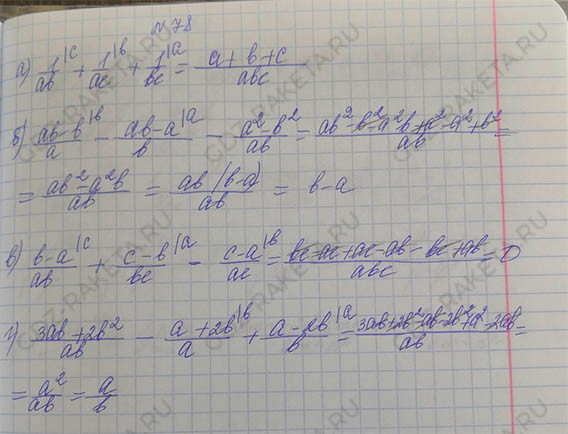 N 78
а) 1/ab |c + 1/ac |b + 1/bc |a = (a + b + c)/abc
б) (ab-b)/a |b − (ab-a)/b |a − (a²-b²)/ab = (ab²-b²-a²b+a²-a²+b²)/ab =
= (ab²-a²b)/ab = ab(b-a)/ab = b-a
в) (b-a)/ab |c + (c-b)/bc |a − (c-a)/ac |b = (bc-ac+ac-ab-bc+ab)/abc = 0
г) (3ab+2b²)/ab − (a+2b)/a |b + (a-2b)/b |a = (3ab+2b²-ab-2b²+a²-2ab)/ab =
= a²/ab = a/b
GDZ-RAKETA.RU
GDZ-RAKETA.RU
GDZ-RAKETA.RU
GDZ-RAKETA.RU